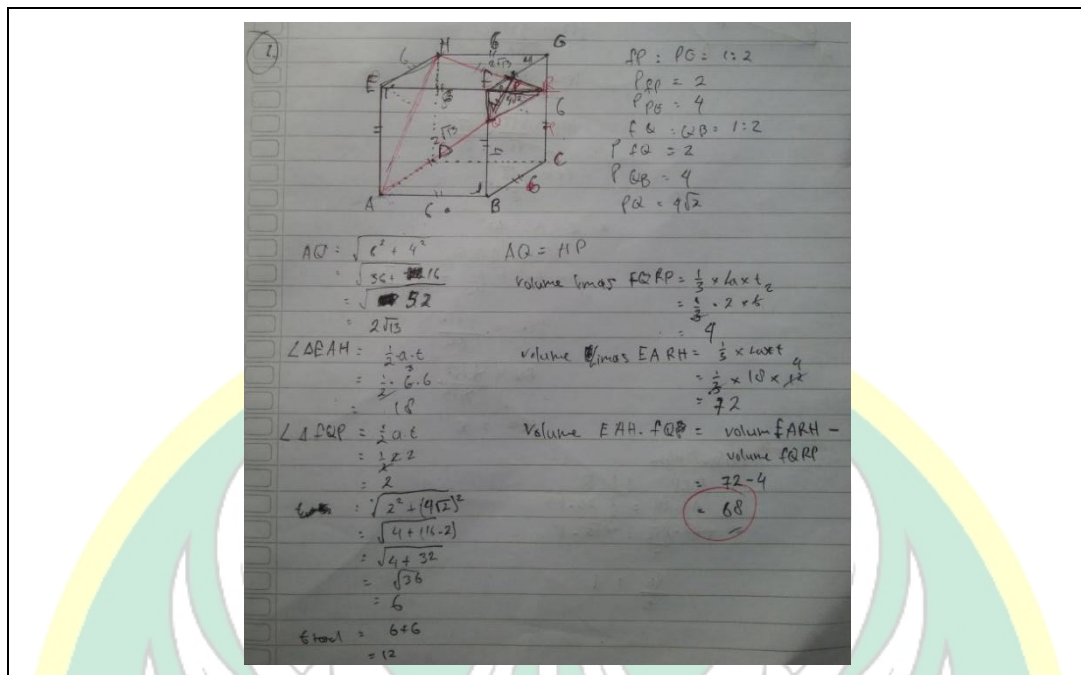 1.
H 6 G
6 2√13 4
E F P R
6 4√2 6
Q
2√13
D C
6
A 6 B
fP : PG = 1:2
P fP = 2
P PG = 4
fQ : QB = 1:2
P fQ = 2
P QB = 4
PQ = 4√2
AQ = √6² + 4²
= √36 + 16
= √52
= 2√13
AQ = HP
L ΔEAH = ½ a.t
= ½ . 6 . 6
= 18
L Δ fQP = ½ a t
= ½ 2.2
= 2
= √2² + (4√2)²
= √4 + (16.2)
= √4 + 32
= √36
= 6
t total = 6+6
= 12
Volume limas FQRP = ⅓ x La x t
= ⅓ . 2 x 6
= 4
volume limas EARH = ⅓ x Laxt
= ⅓ x 18 x 12
= 72
Volume EAH.fQP = volum EARH –
volume fQRP
= 72-4
= 68